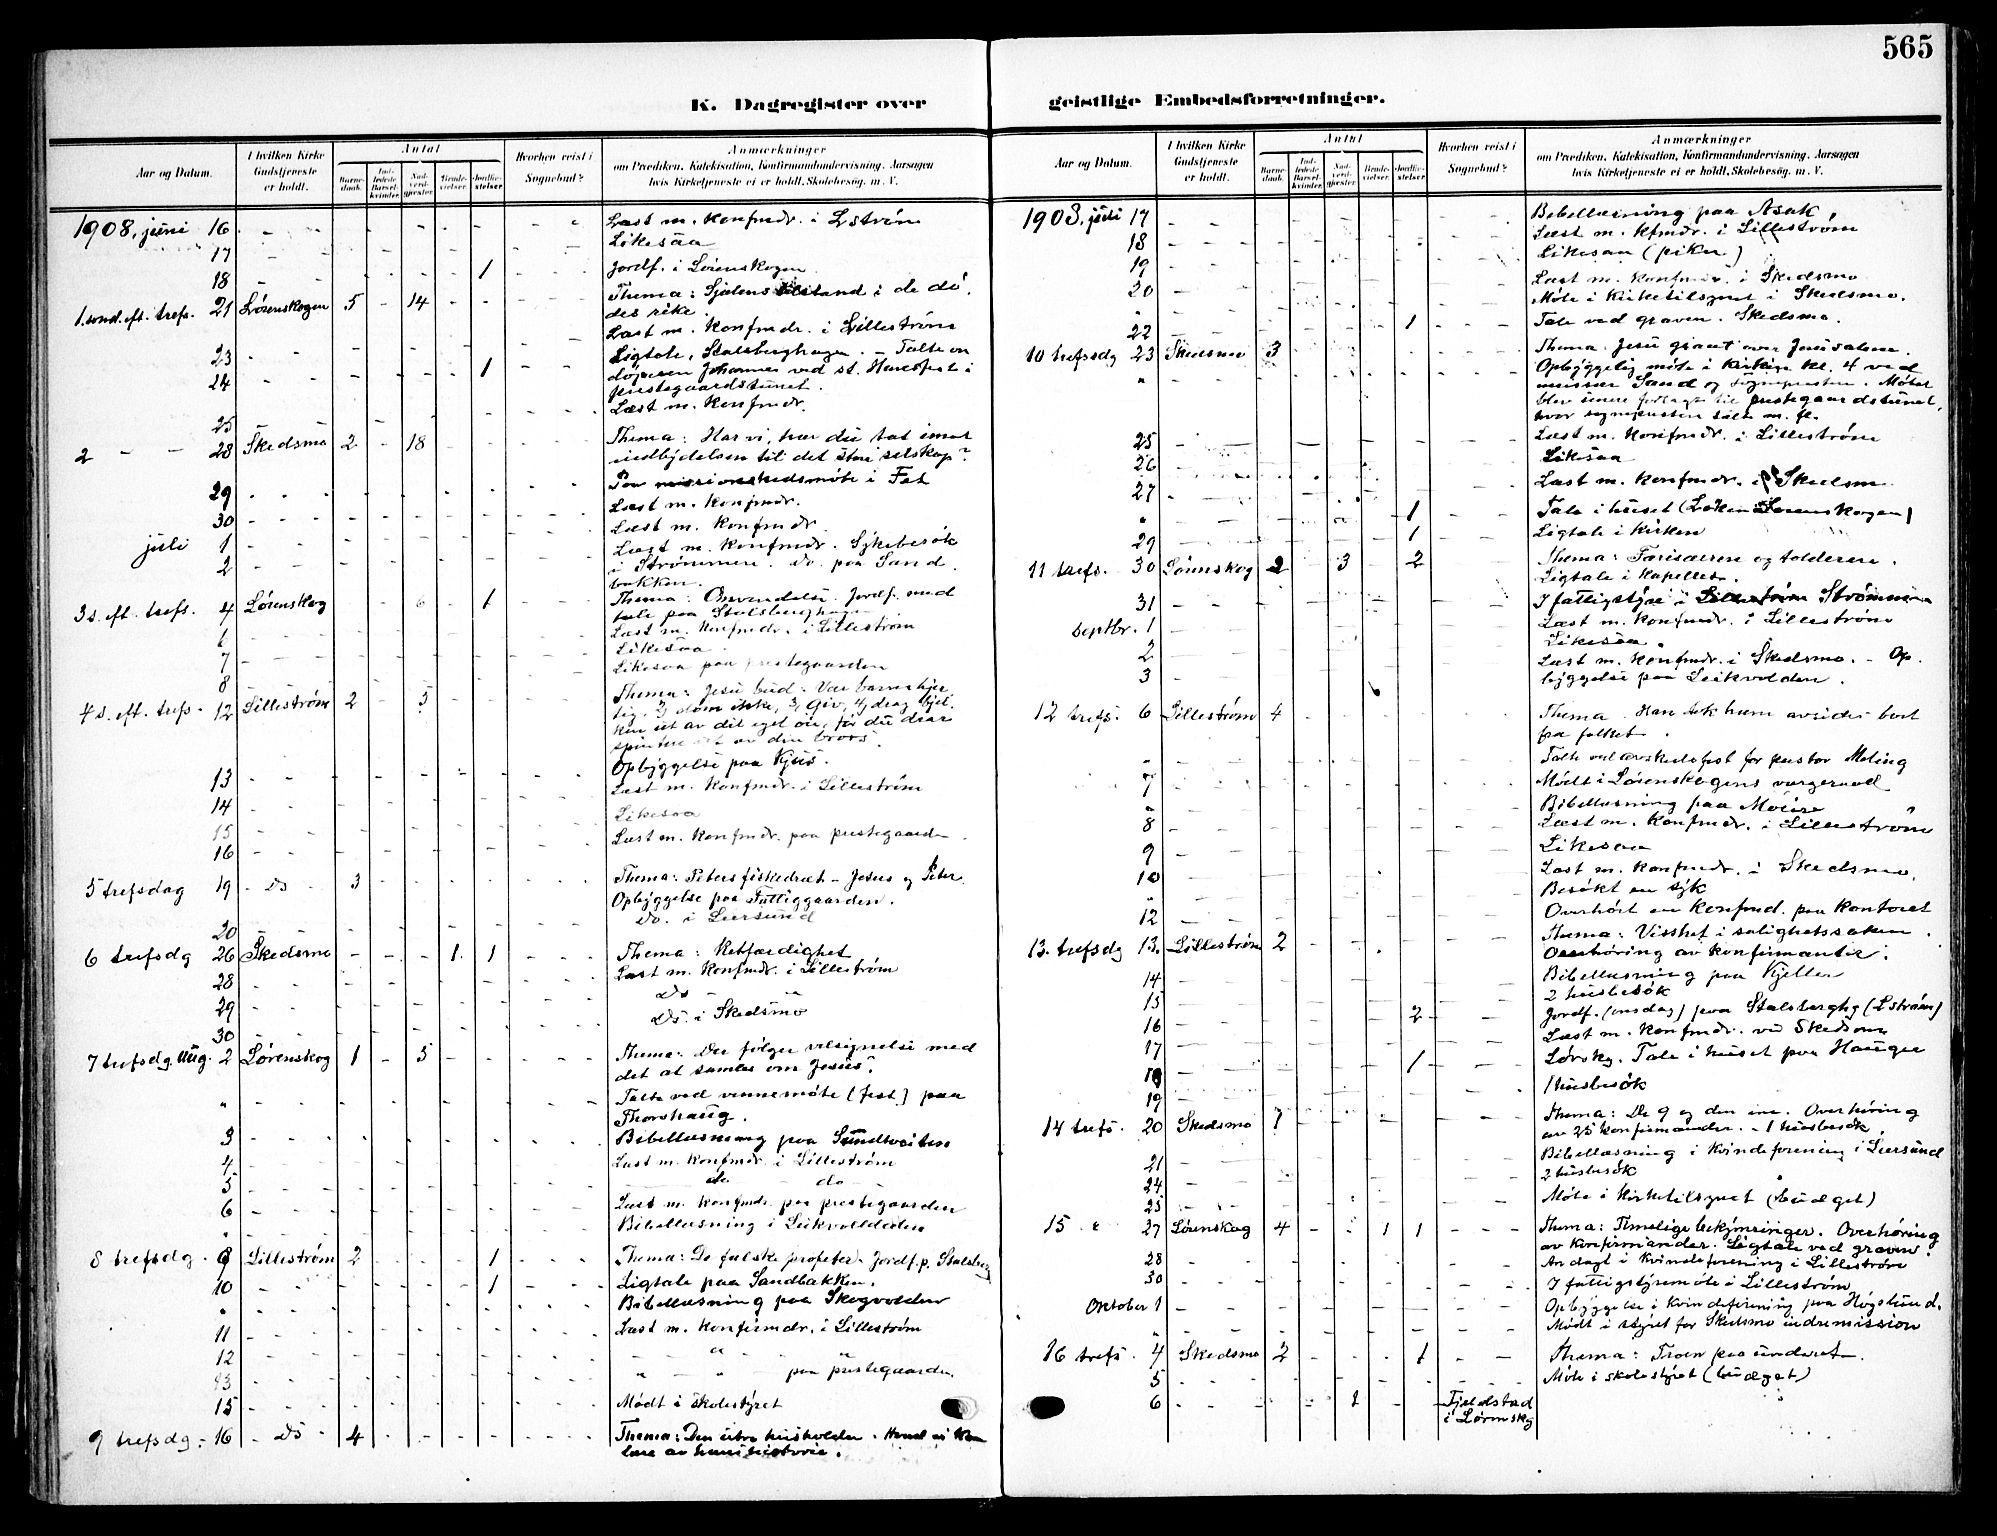 565
K. Dagregister over
geistlige Embedsforretninger.
Aar og Datum.
I hvilken Kirke Gudstjeneste er holdt.
Antal
Barnedaab.
Indledede Barselkvinder.
Nadverdgjester
Brudevielser.
Jordfæstelser
Hvorhen reist i Sognebud?
Anmærkninger
om Prædiken, Katekisation, Konfirmandundervisning, Aarsagen
hvis Kirketjeneste ei er holdt, Skolebesøg, m. V.
1908, juni 16 Læst m. Konfmdr. i Lstrøm
17 Likesaa
18 1 Jordf. i Lørenskogen
1. sond. eft. trefs. 21 Lørenskogen 5 - 14 Thema: Sjælens tilstand i de dø.
des rike.
Læst m. Konfmdr. i Lillestrøm
23 Ligtale, Stalsberghagen. - Talte om
24 1 døperen Johannes ved st. Hansfest i
prestegaardstunet.
25 Læst m. Konfmdr.
2 - - 28 Skedsmo 2 - 18 Thema: Har vi, har du tat imot
indbydelsen til det store selskap?
29 Paa missionskredsmøte i Fet
30 Læst m. Konfmdr.
Læst m. Konfmdr.
juli 1 Læst m. Konfmdr. Sykebesøk
2 i Strømmen. do. paa Sand.
bakken.
3 s. eft. trefs. 4 Lørenskog 6 - 1 Thema: Omvendelse. Jordf. med
tale paa Stalsberghagen
6 Læst m. Konfmdr. i Lillestrøm
7 Likesaa.
8 Likesaa paa prestegaarden
4 s. eft. trefs. 12 Lillestrøm 2 - 5 Thema: Jesu bud: Vær barmhjer
tig, 2, døm ikke, 3, Giv, 4, drag bjel.
ken ut av dit eget øie, før du drar
splinten ut av din brors.
Opbyggelse paa Kjus.
13 Læst m. Konfmdr. i Lillestrøm
14 Likesaa
15
16 Læst m. Konfmdr. paa prestegaarden
5 trefsdag 19 - Do - 3 Thema: Peters fiskedræt - Jesus og Peter.
Opbyggelse paa Fattiggaarden.
20 Do. i Leersund
6 trefsdg 26 Skedsmo - - - 1 1 Thema: Retfærdighet
28 Læst m. Konfmdr. i Lillestrøm
29 Do
30 Do. i Skedsmo
7 trefsdg. Aug. 2 Lørenskog 1 - 5 Thema: Der følger velsignelse med
det at samles om Jesus.
" Talte ved vennemøte (fest) paa
Thorshaug.
3 Bibellæsning paa Sundtveiten
4 Læst m. Konfmdr. i Lillestrøm
5 do - do -
6 Læst m. Konfmdr. paa prestegaarden
" Bibellæsning i Leikvolden
8 trefsdg. 9 Lillestrøm 2 1 Thema: De falske profeter. Jordf. p. Stalsberg
10 1 Ligtale paa Sandbakken.
" Bibellæsning paa Skogvolden
11 Læst m. Konfirmdr. i Lillestrøm
12 " "
13 " - " - paa prestegaarden
15 Mødt i skolestyret
9 trefsdg. 16 - Do - 4 Thema: Den utro husholder.
lære av ham
1908, juli 17 Bibellæsning paa Asak,
18 Læst m. Kfmdr. i Lillestrøm
19 Likesaa (piker)
20 Læst m. Konfmdr. i Skedsmo
" Møte i Kirketilsynet i Skedsmo.
22 1 Tale ved graven. Skedsmo.
10 trefsdg 23 Skedsmo 3 Thema: Jesu graat over Jerusalem.
" Opbyggelig møte i Kirken kl. 4 ved
missær Sand og sognepresten. Møtet
blev senere forlagt til prestegaardstunet,
hvor sognepresten talte m. fl.
25 Læst m. Konfmdr. i Lillestrøm
26 Likesaa
27 Læst m. Konfmdr. i Skedsmo
" 1 Tale i huset (Løken Lørenskogen)
29 1 Ligtale i Kirken
11 trefs. 30 Lørenskog 2 3 2 Thema: Farisæeren og tolderen.
Ligtale i Kapellet.
31 I fattigstyre i Strømmen
Septbr. 1 Læst m. Konfmdr. i Lillestrøm
2 Likesaa.
3 Læst m. Konfmdr. i Skedsmo. - Op.
byggelse paa Leikvolden.
12 trefs. 6 Lillestrøm 4 Thema. Han tok ham avsides bort
fra folket.
" Talte ved avskedsfest for pastor Meling
7 Mødt i Lørenskogens vergeraad
" Bibellæsning paa Moier
8 Læst m. Konfmdr. i Lillestrøm
9 Likesaa
10 Læst m. Konfmdr. i Skedsmo.
" Besøkt en syk
12 Overhørt en Konfmd. paa Kontoret
13. trefsdg 13. Lillestrøm 2 Thema: Visshet i salighetssaken.
Overhøring av Konfirmanter.
14 Bibellæsning paa Kjeller
15 2 husbesøk
16 2 Jordf. (onsdag) paa Stalsberghg (Lstrøm)
17 Læst m. Konfmdr. ved Skedsmo
18 1 Lørskg. Tale i huset paa Hauger
19 1 husbesøk
14 trefs. 20 Skedsmo 1 Thema: De 9 og den ene. Overhøring
av 25 konfirmander. - 1 husbesøk.
21 Bibellæsning i Kvindeforening i Leersund
24 2 husbesøk
25 Møte i Kirketilsynet (budget)
15 " 27 Lørenskog 4 - 1 1 Thema: Timelige bekymringer. Overhøring
av Konfirmander. Ligtale ved graven.
28 Andagt i Kvindeforening i Lillestrøm
30 I fattigstyremøte i Lillestrøm
Oktober 1 Opbyggelse i Kvindeforening paa Høgslund.
" Mødt i styret for Skedsmo indremission
16 trefs. 4 Skedsmo 2 1 Thema: Troen paa underet.
5 Møte i skolestyret (budget)
6 1 Fjeldstad
i Lørenskg